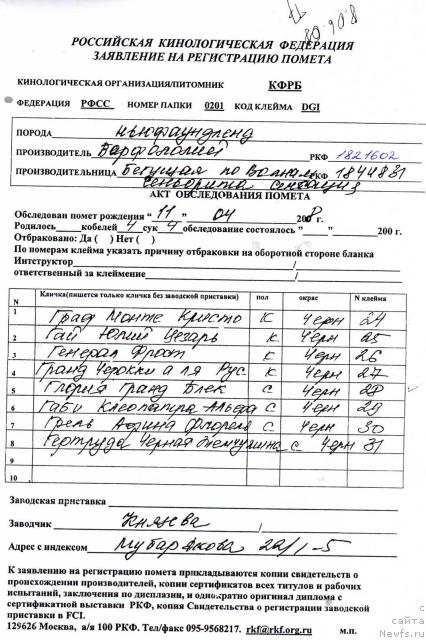 80-908
РОССИЙСКАЯ КИНОЛОГИЧЕСКАЯ ФЕДЕРАЦИЯ
ЗАЯВЛЕНИЕ НА РЕГИСТРАЦИЮ ПОМЕТА
КИНОЛОГИЧЕСКАЯ ОРГАНИЗАЦИЯ/ПИТОМНИК КФРБ
ФЕДЕРАЦИЯ РФСС НОМЕР ПАПКИ 0201 КОД КЛЕЙМА DGI
ПОРОДА ньюфаундленд
ПРОИЗВОДИТЕЛЬ Варфоломей РКФ 1821602
ПРОИЗВОДИТЕЛЬНИЦА Бегущая по Волнам РКФ 1844831
Сеньорита Сенсация
АКТ ОБСЛЕДОВАНИЯ ПОМЕТА
Обследован помет рождения "11" 04 2008 г.
Родилось кобелей 4 сук 4 обследование состоялось " " 200 г.
Отбраковано: Да ( ) Нет ( )
По номерам клейма указать причину отбраковки на оборотной стороне бланка
Интструктор / /
ответственный за клеймение / /
N Кличка(пишется только кличка без заводской приставки) пол окрас N клейма
1 Граф Монте Кристо К Черн 24
2 Гай Юлий Цезарь К Черн 25
3 Генерал Фрост К Черн 26
4 Гранд Черокки а ля Рус К Черн 27
5 Глория Гранд Блек С Черн 28
6 Габи Клеопатра Альфа С Черн 29
7 Грель Афина Флорель С Черн 30
8 Гертруда Черная Жемчужина С Черн 31
9
10
Заводская приставка
Заводчик Князева /
Адрес с индексом Мубарякова 22/1-5
К заявлению на регистрацию помета прикладываются копии свидетельств о
происхождении производителей, копии сертификатов всех титулов и рабочих
испытаний, заключения по дисплазии, и однократно оригинал диплома с
сертификатной выставки РКФ, копия Свидетельства о регистрации заводской
приставки в FCI.
129626 Москва, а/я 100 РКФ. Тел/факс 095-9568217. rkf@rkf.org.ru м.п.
С сайта
Newfs.ru